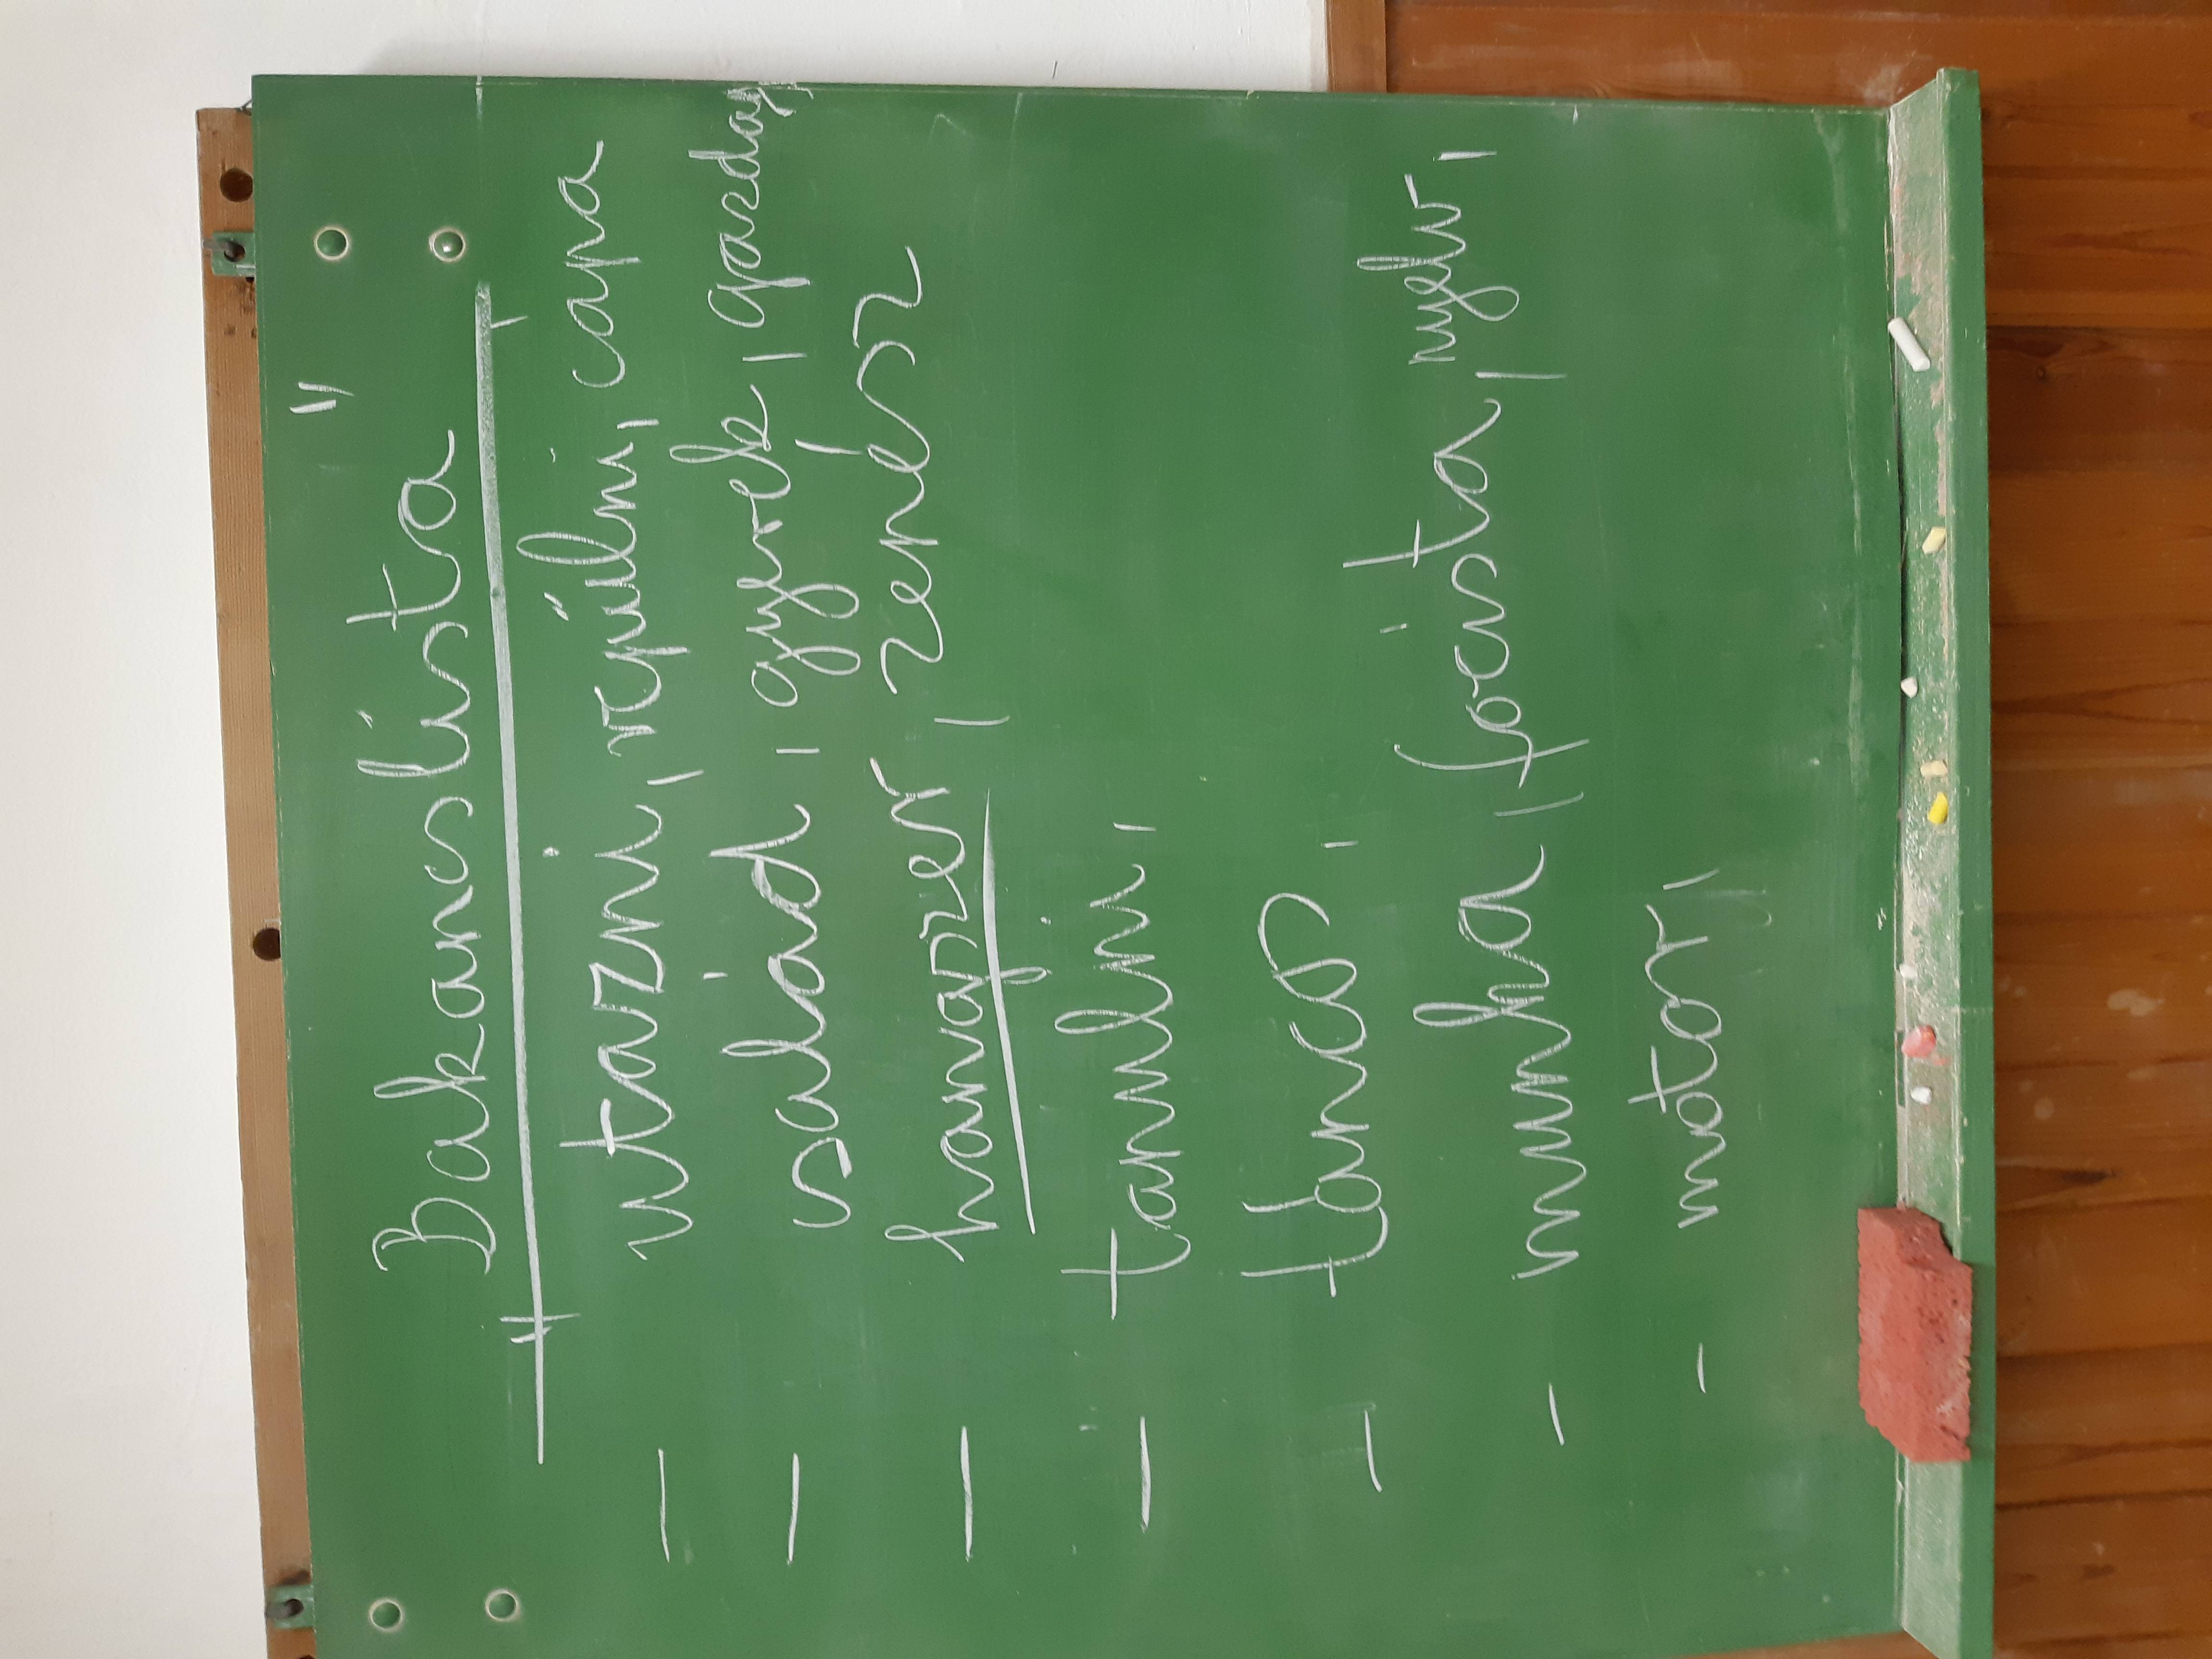 „Bakancslista”
- utazni, repülni, capa
- család, gyerek, gazdag
- hawajzer, zenész
- tanulni,
- táncos,
- munha, foci sta, nyelv,
- motor,